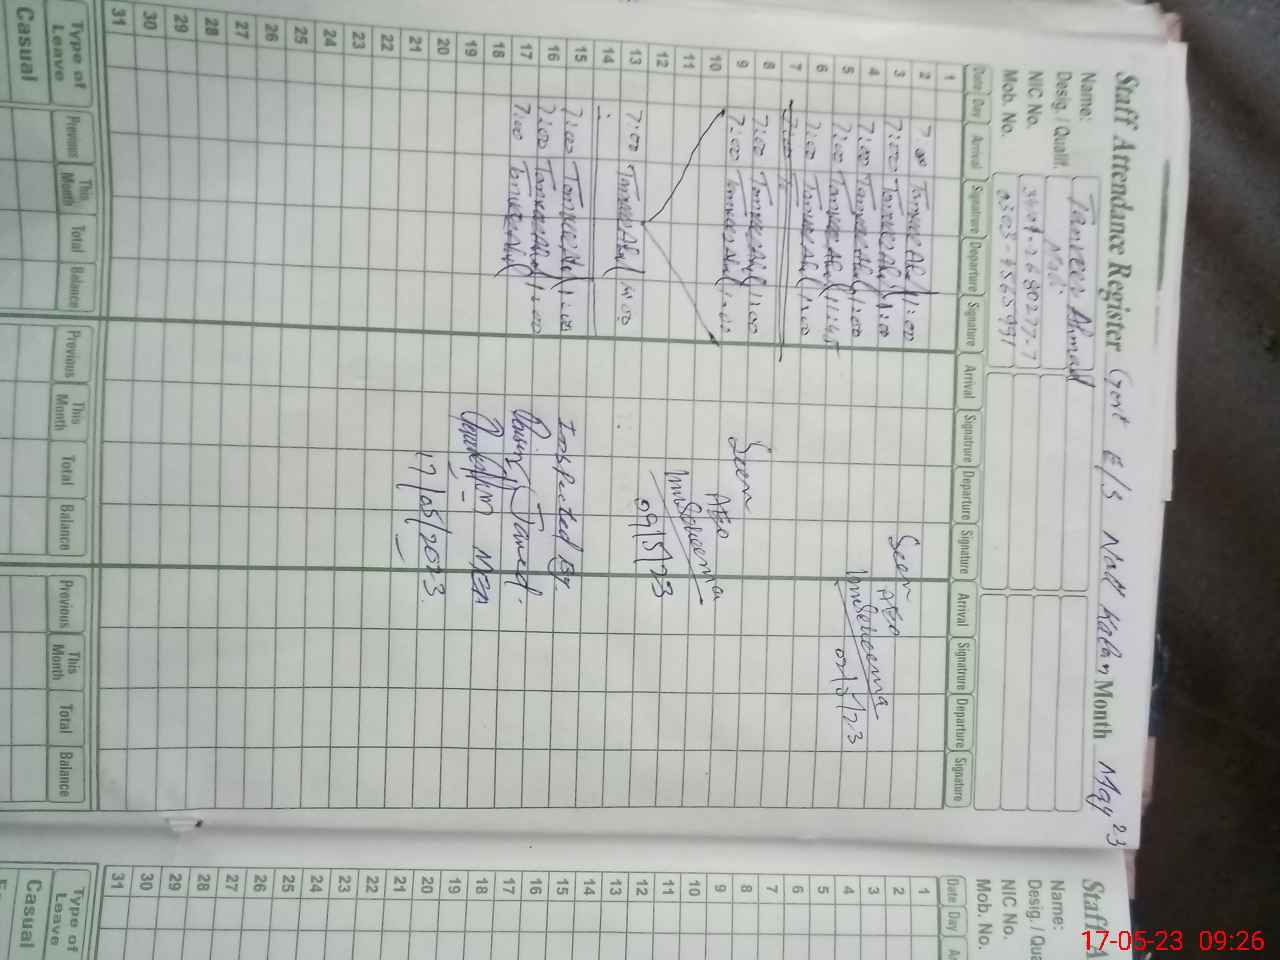 Staff Attendance Register Govt E/S Kalan Month May 23
Name: Tanveer Ahmad
Desig. / Qualif.
NIC No.
Mob. No.
Date Day Arrival Signatrure Departure Signature Arrival Signatrure Departure Signature Arrival Signatrure Departure Signature
1
2 7:00 Tanveer Ahmad 1:00
3 7:00 Tanveer Ahmad 1:00
4 7:00 Tanveer Ahmad 1:00
5 7:00 Tanveer Ahmad 11:45
6 7:00 Tanveer Ahmad 1:00
7
8 7:00 Tanveer Ahmad 1:00
9 7:00 Tanveer Ahmad 1:00
10
11
12
13 7:00 Tanveer Ahmad
14
15 7:00 Tanveer Ahmad 1:00
16 7:00 Tanveer Ahmad 1:00
17 7:00 Tanveer Ahmad
18
19
20
21
22
23
24
25
26
27
28
29
30
31
Seen
AEO
Seen
AEO
09/5/23
Inspected By.
MEA
17/05/2023.
Type of Leave Previous This Month Total Balance Previous This Month Total Balance Previous This Month Total Balance
Casual
Staff A
Name:
Desig. / Qua
NIC No.
Mob. No.
Date Day
1
2
3
4
5
6
7
8
9
10
11
12
13
14
15
16
17
18
19
20
21
22
23
24
25
26
27
28
29
30
31
Type of Leave
Casual
17-05-23 09:26